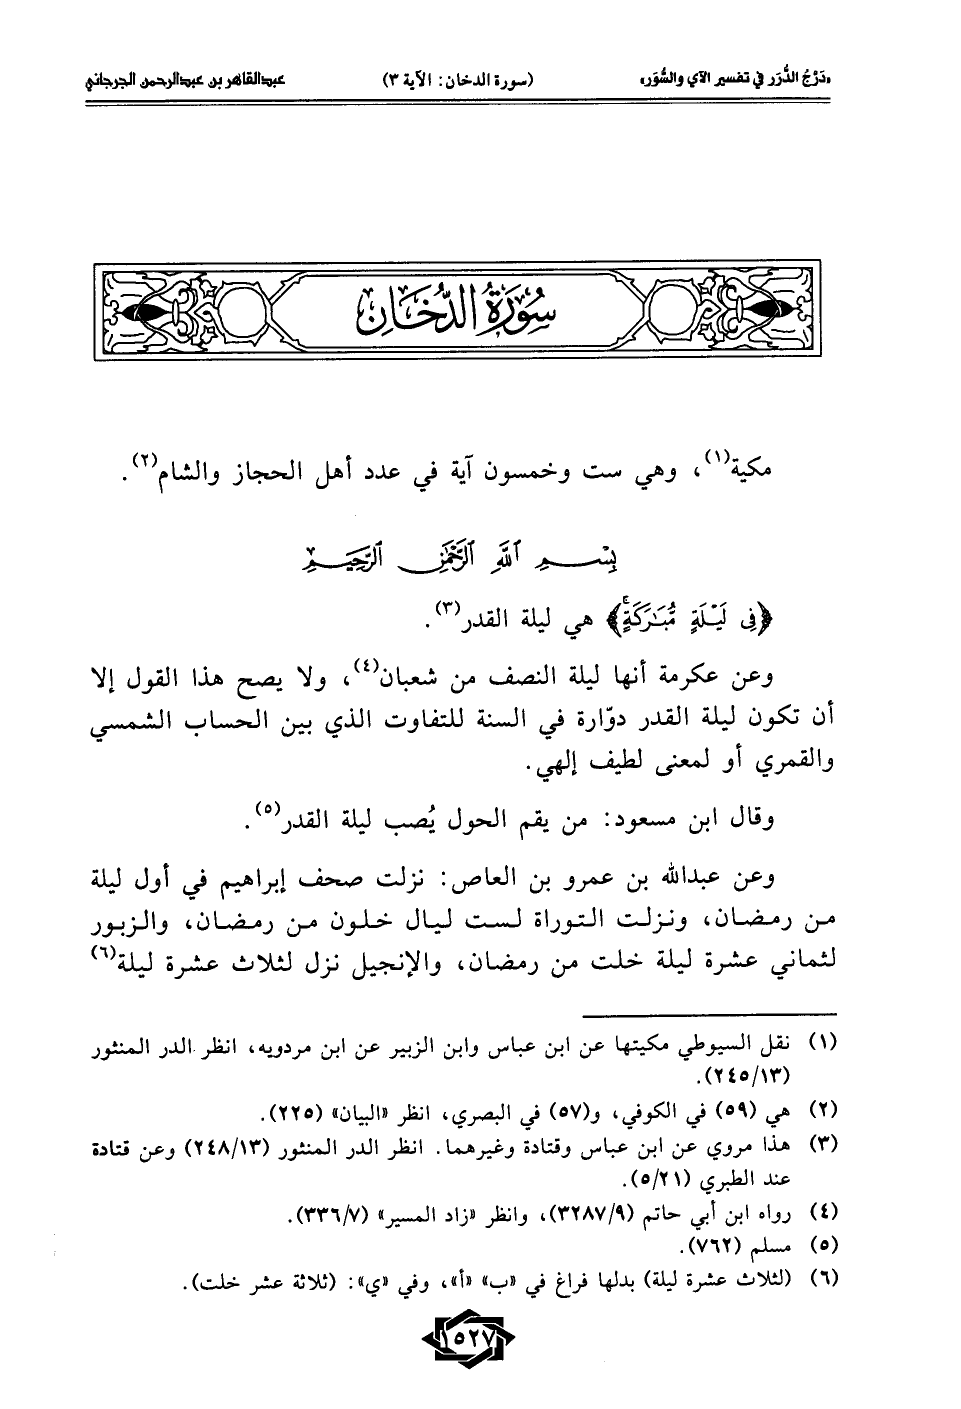 «دَرْجُ الدُّرَر في تفسير الآي والسُّوَر» (سورة الدخان: الآية ٣) عبدالقاهر بن عبدالرحمن الجرجاني
سُورَةُ الدُّخَان
مكية(١)، وهي ست وخمسون آية في عدد أهل الحجاز والشام(٢).
بِسْمِ ٱللَّهِ ٱلرَّحْمَٰنِ ٱلرَّحِيمِ
﴿فِى لَيْلَةٍ مُّبَٰرَكَةٍ﴾ هي ليلة القدر(٣).
وعن عكرمة أنها ليلة النصف من شعبان(٤)، ولا يصح هذا القول إلا
أن تكون ليلة القدر دوّارة في السنة للتفاوت الذي بين الحساب الشمسي
والقمري أو لمعنى لطيف إلهي.
وقال ابن مسعود: من يقم الحول يُصب ليلة القدر(٥).
وعن عبدالله بن عمرو بن العاص: نزلت صحف إبراهيم في أول ليلة
من رمضان، ونزلت التوراة لست ليال خلون من رمضان، والزبور
لثماني عشرة ليلة خلت من رمضان، والإنجيل نزل لثلاث عشرة ليلة(٦)
(١) نقل السيوطي مكيتها عن ابن عباس وابن الزبير عن ابن مردويه، انظر الدر المنثور
(٢٤٥/١٣).
(٢) هي (٥٩) في الكوفي، و(٥٧) في البصري، انظر «البيان» (٢٢٥).
(٣) هذا مروي عن ابن عباس وقتادة وغيرهما. انظر الدر المنثور (٢٤٨/١٣) وعن قتادة
عند الطبري (٥/٢١).
(٤) رواه ابن أبي حاتم (٣٢٨٧/٩)، وانظر «زاد المسير» (٣٣٦/٧).
(٥) مسلم (٧٦٢).
(٦) (لثلاث عشرة ليلة) بدلها فراغ في «ب» «أ»، وفي «ي»: (ثلاثة عشر خلت).
١٥٢٧